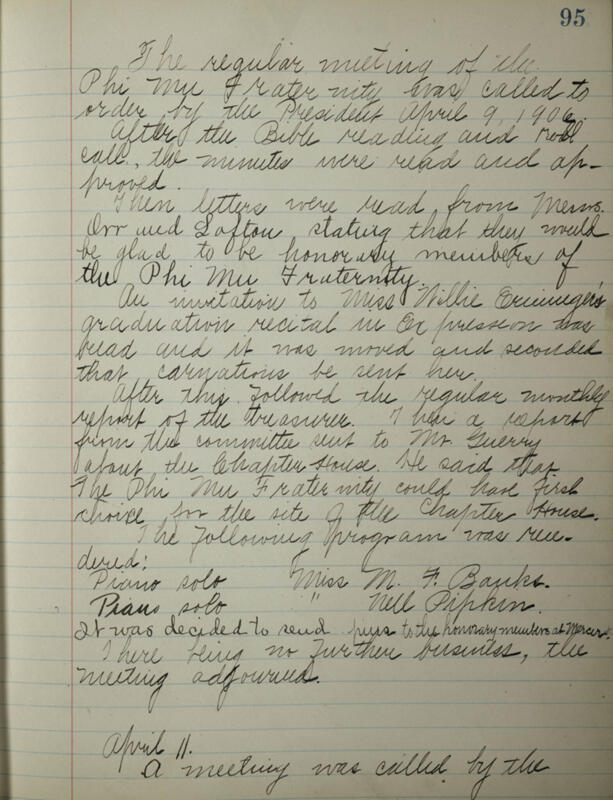 95
The regular meeting of the
Phi Mu Fraternity was called to
order by the President April 9, 1906.
After the Bible reading and roll
call, the minutes were read and ap-
proved.
Then letters were read from Messrs.
Orr and Lofton, stating that they would
be glad to be honorary members of
the Phi Mu Fraternity.
An invitation to Miss Willie Erminger's
graduation recital in Expression was
read and it was moved and seconded
that carnations be sent her.
After this followed the regular monthly
report of the treasurer. Then a report
from the committee sent to Mr. Guerry
about the Chapter House. He said that
the Phi Mu Fraternity could have first
choice for the site of the Chapter House.
The following program was ren-
dered:
Piano solo Miss M. F. Banks.
Piano solo " Nell Pipkin.
It was decided to send pins to the honorary members at Mercer.
There being no further business, the
meeting adjourned.
April 11.
A meeting was called by the